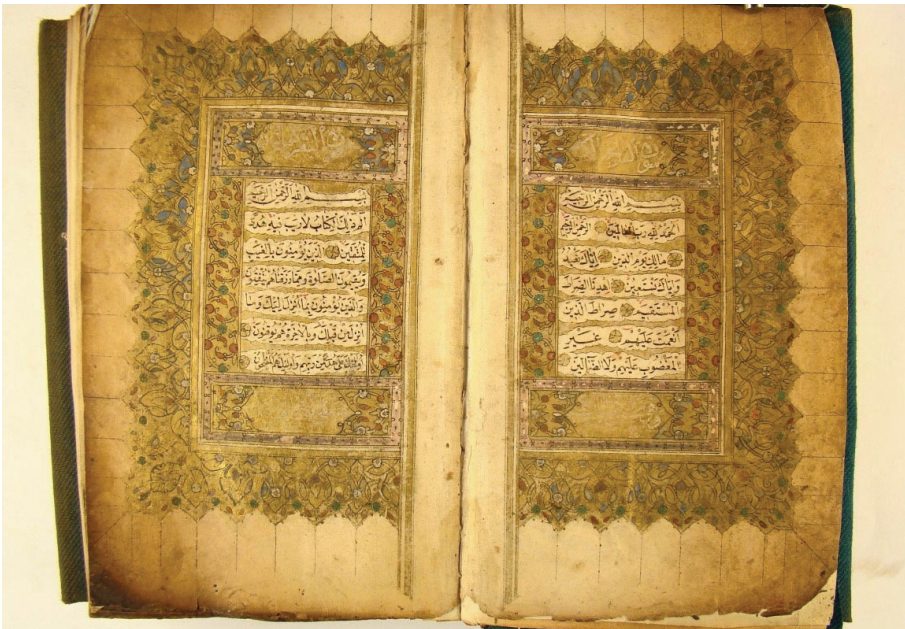 بسم الله الرحمن الرحيم
الحمد لله رب العالمين الرحمن الرحيم
مالك يوم الدين إياك نعبد
وإياك نستعين اهدنا الصراط
المستقيم صراط الذين
أنعمت عليهم غير
المغضوب عليهم ولا الضالين
بسم الله الرحمن الرحيم
الم ذلك الكتاب لا ريب فيه هدى
للمتقين الذين يؤمنون بالغيب
ويقيمون الصلوة ومما رزقناهم ينفقون
والذين يؤمنون بما أنزل إليك وما
أنزل من قبلك وبالآخرة هم يوقنون
أولئك على هدى من ربهم وأولئك هم المفلحون